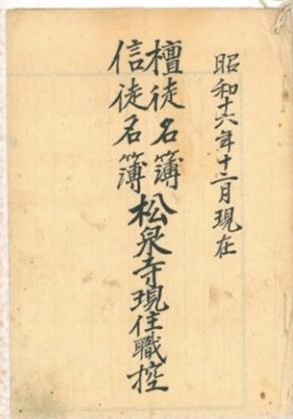 昭和十六年十二月現在
檀徒名簿
信徒名簿
松泉寺現住職控